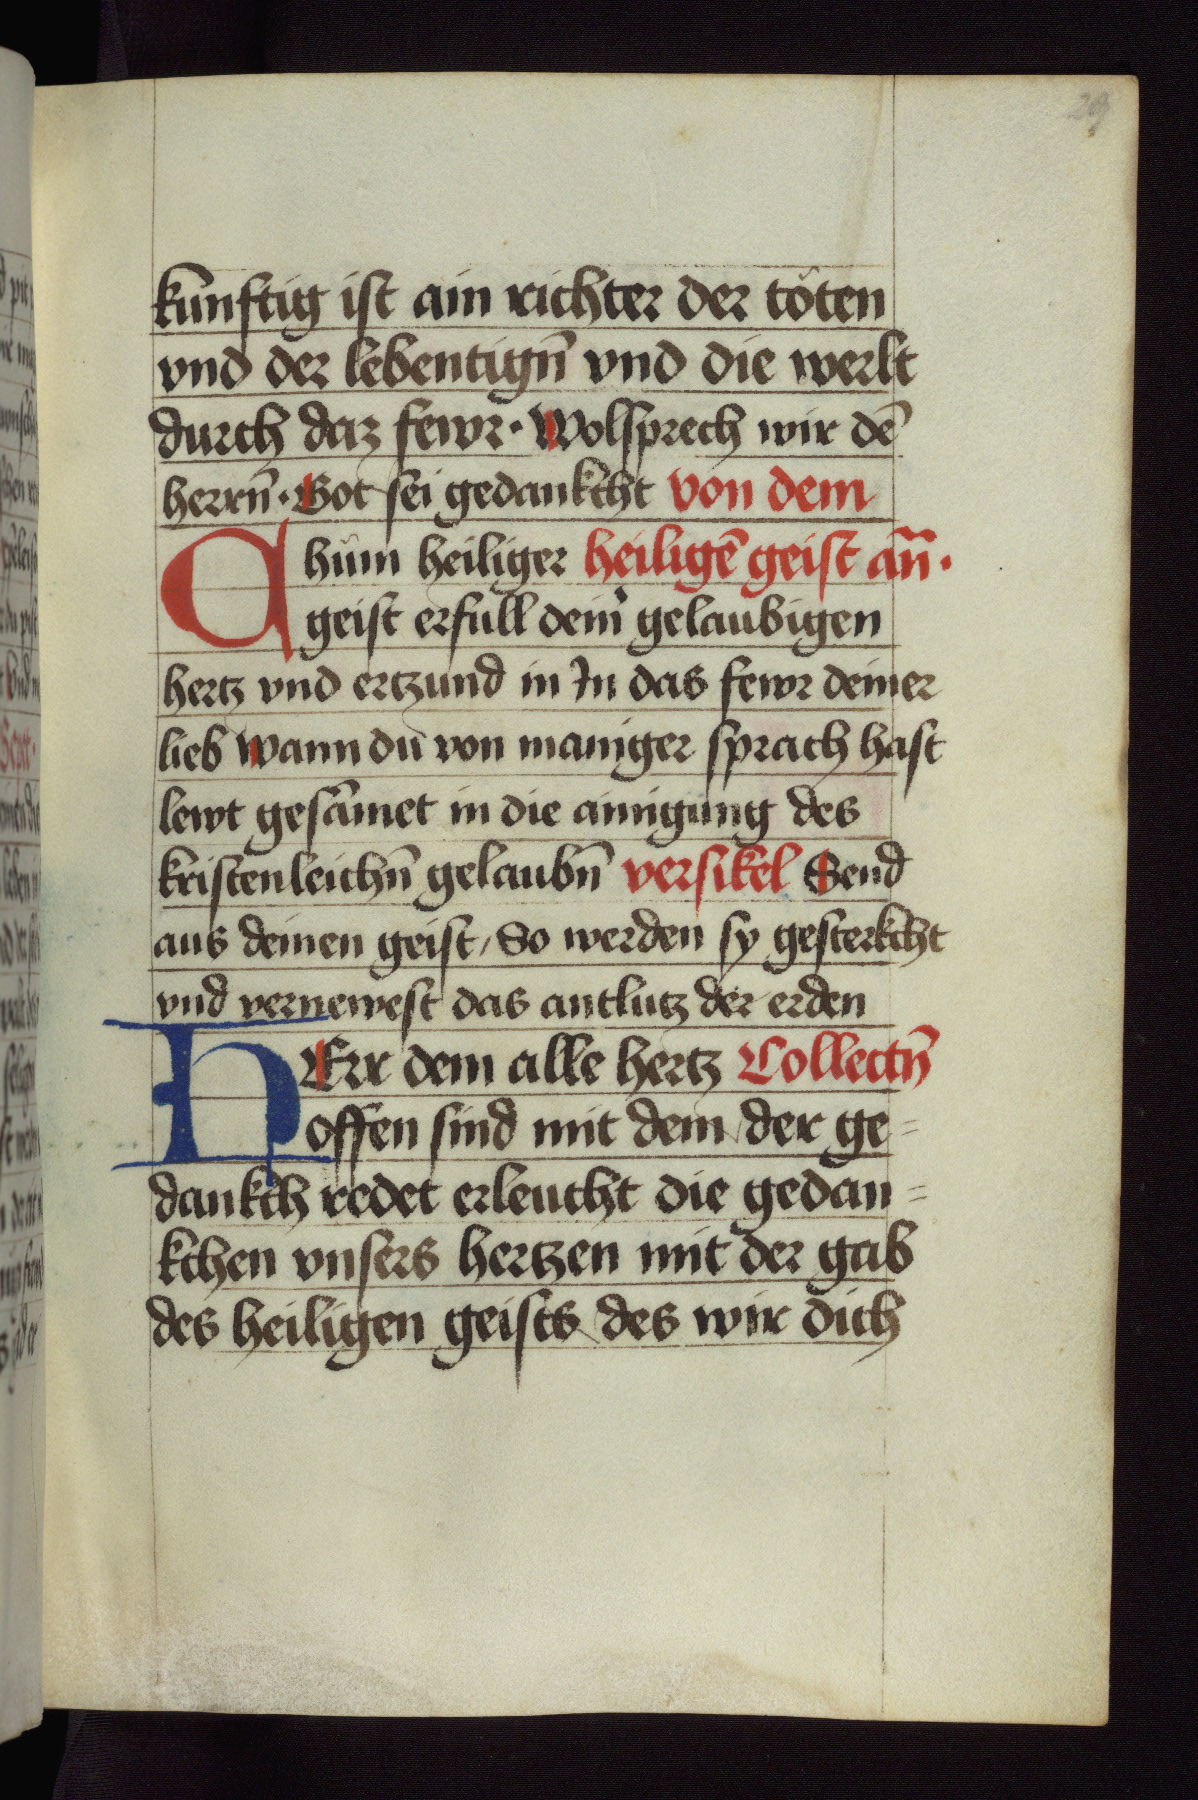 29
kunftig ist ain richter der töten
vnd der lebentign̄ vnd die werlt
durch daz fewr · Wolsprech wir dē
herrn̄ · Got sei gedankcht von dem
Chum heiliger heiligē geist an̄ ·
geist erfull deinˀ gelaubigen
hertz vnd ertzund in In das fewr deiner
lieb wann du von maniger sprach hast
lewt gesāmet in die ainigung des
kristenleichn̄ gelaubn̄ versikel Send
aus deinen geist / So werden sy gesterkcht
vnd vernewest das antlutz der erden
HErr dem alle hertz Collectn̄
offen sind mit dem der ge=
dankch redet erleucht die gedan=
kchen vnsers hertzen mit der gab
des heiligen geists des wir dich